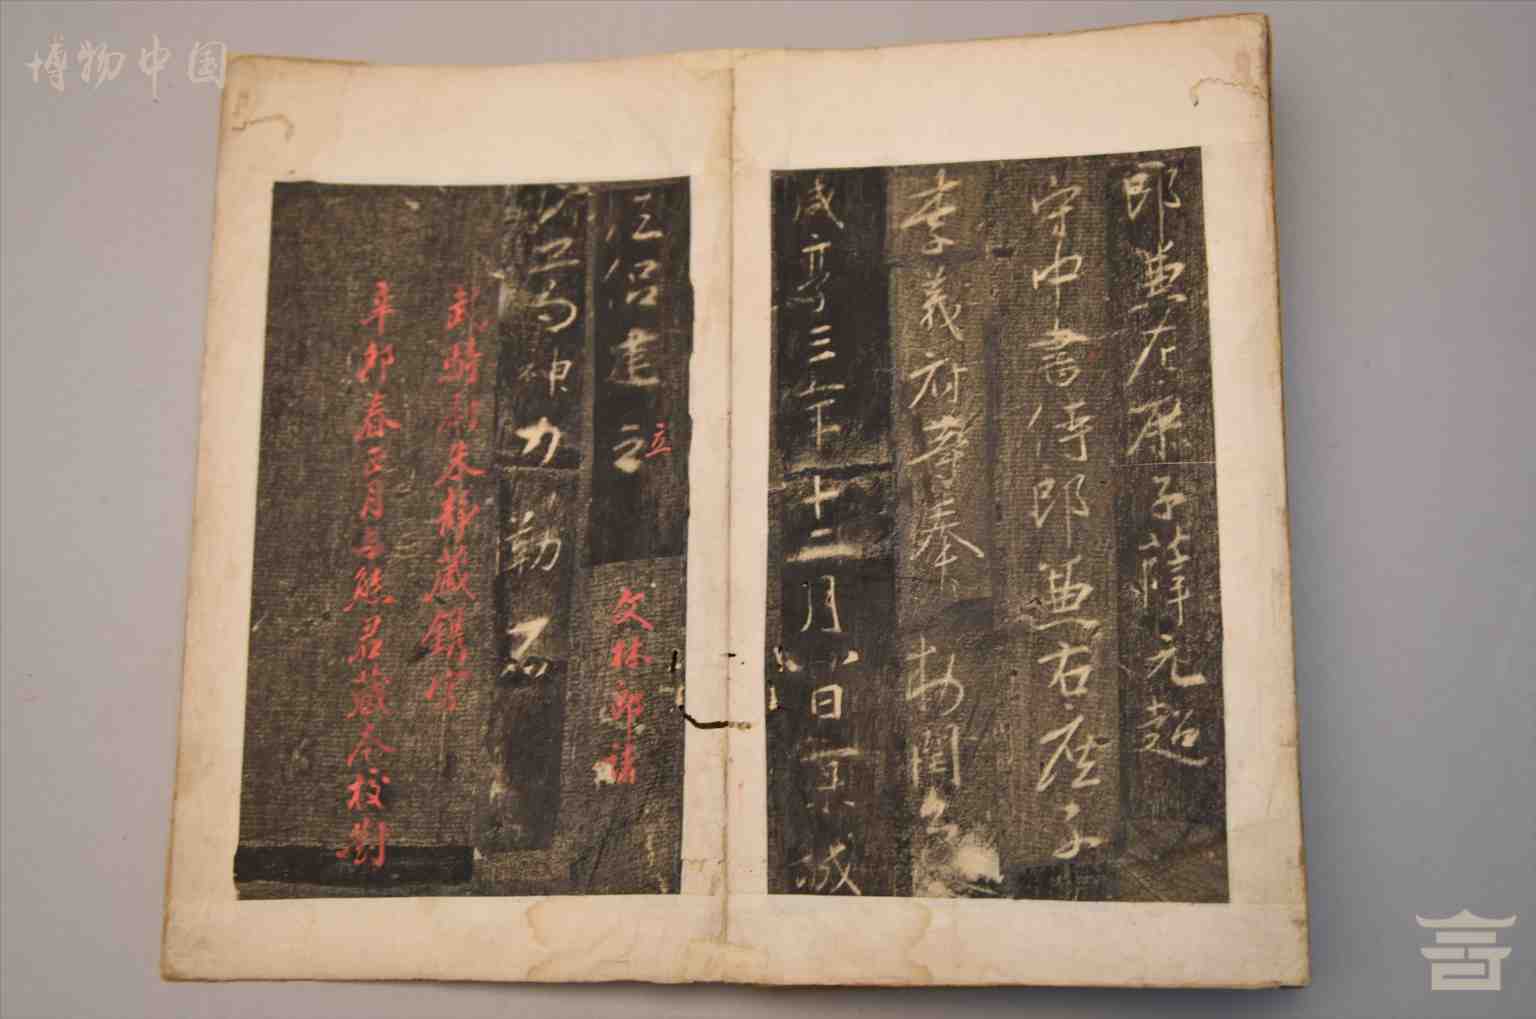 博物中国
郎兼左庶子薛元超
守中書侍郎兼右庶子
李義府等奉 敕潤色
咸亨三年十二月八日京城
法侶建之立 文林郎諸
諸葛神力勒石
武騎尉朱靜藏鐫字
辛卯春正月熊君藏本校對